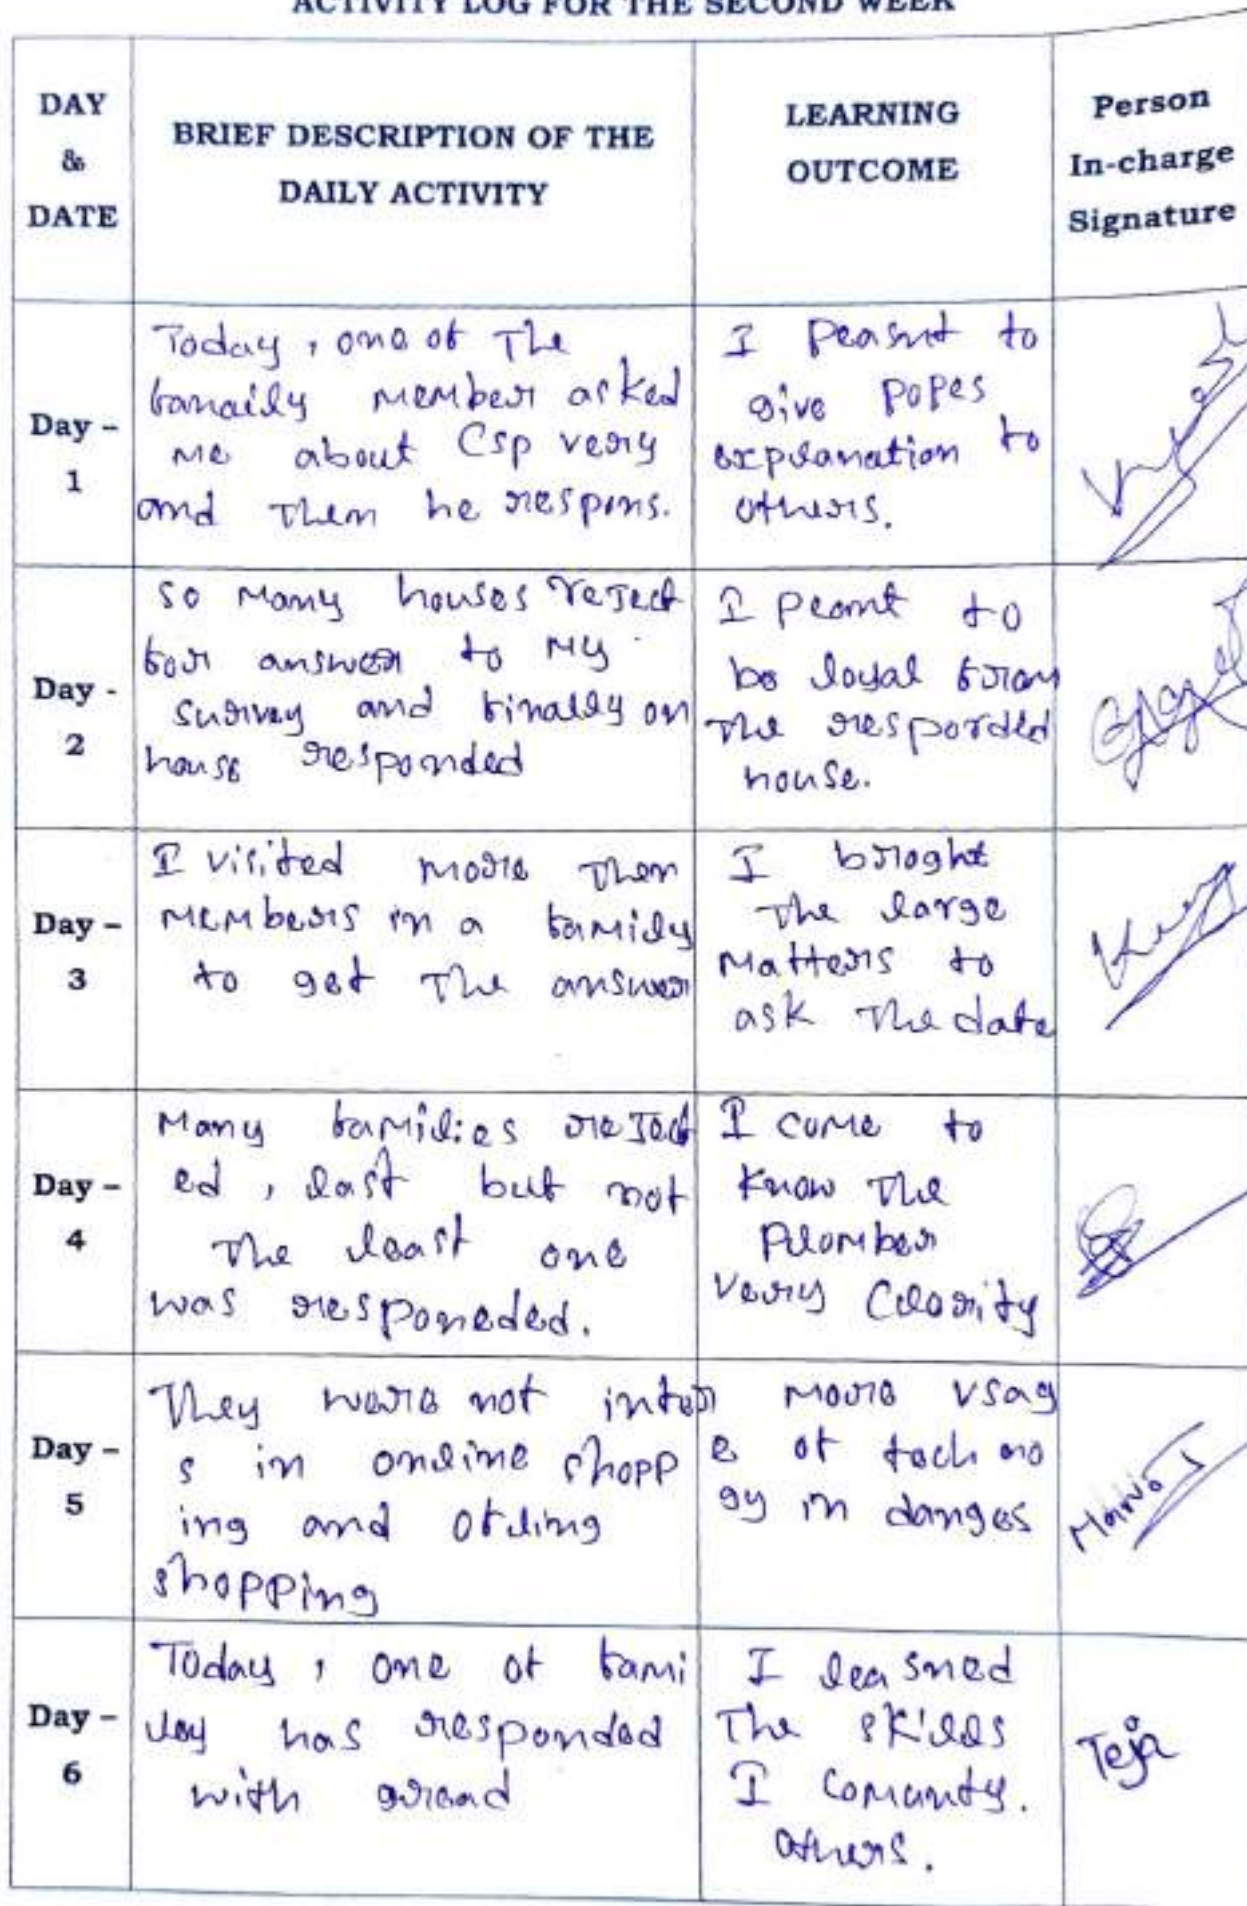 ACTIVITY LOG FOR THE SECOND WEEK
DAY
&
DATE
BRIEF DESCRIPTION OF THE
DAILY ACTIVITY
LEARNING
OUTCOME
Person
In-charge
Signature
Day –
1
Today, one of The
family member asked
me about Csp very
and Then he respons.
I to
give
explanation to
others.
Day -
2
So Many houses reject
for answer to My
survey and finally on
house responded
I to
be loyal from
The responded
house.
Day –
3
I visited more Then
members in a family
to get The answer
I broght
The large
Matters to
ask The date
Day –
4
Many families reject
ed, last but not
The least one
was responeded.
I come to
Know The
Plomber
very Clority
Day –
5
They were not inter
s in online shopp
ing and ofling
shopping
more usag
e of tech no
gy in danges
Manoj
Day –
6
Today, one of fami
ley has responded
with
I leasned
The skills
I Comunty.
others.
Teja